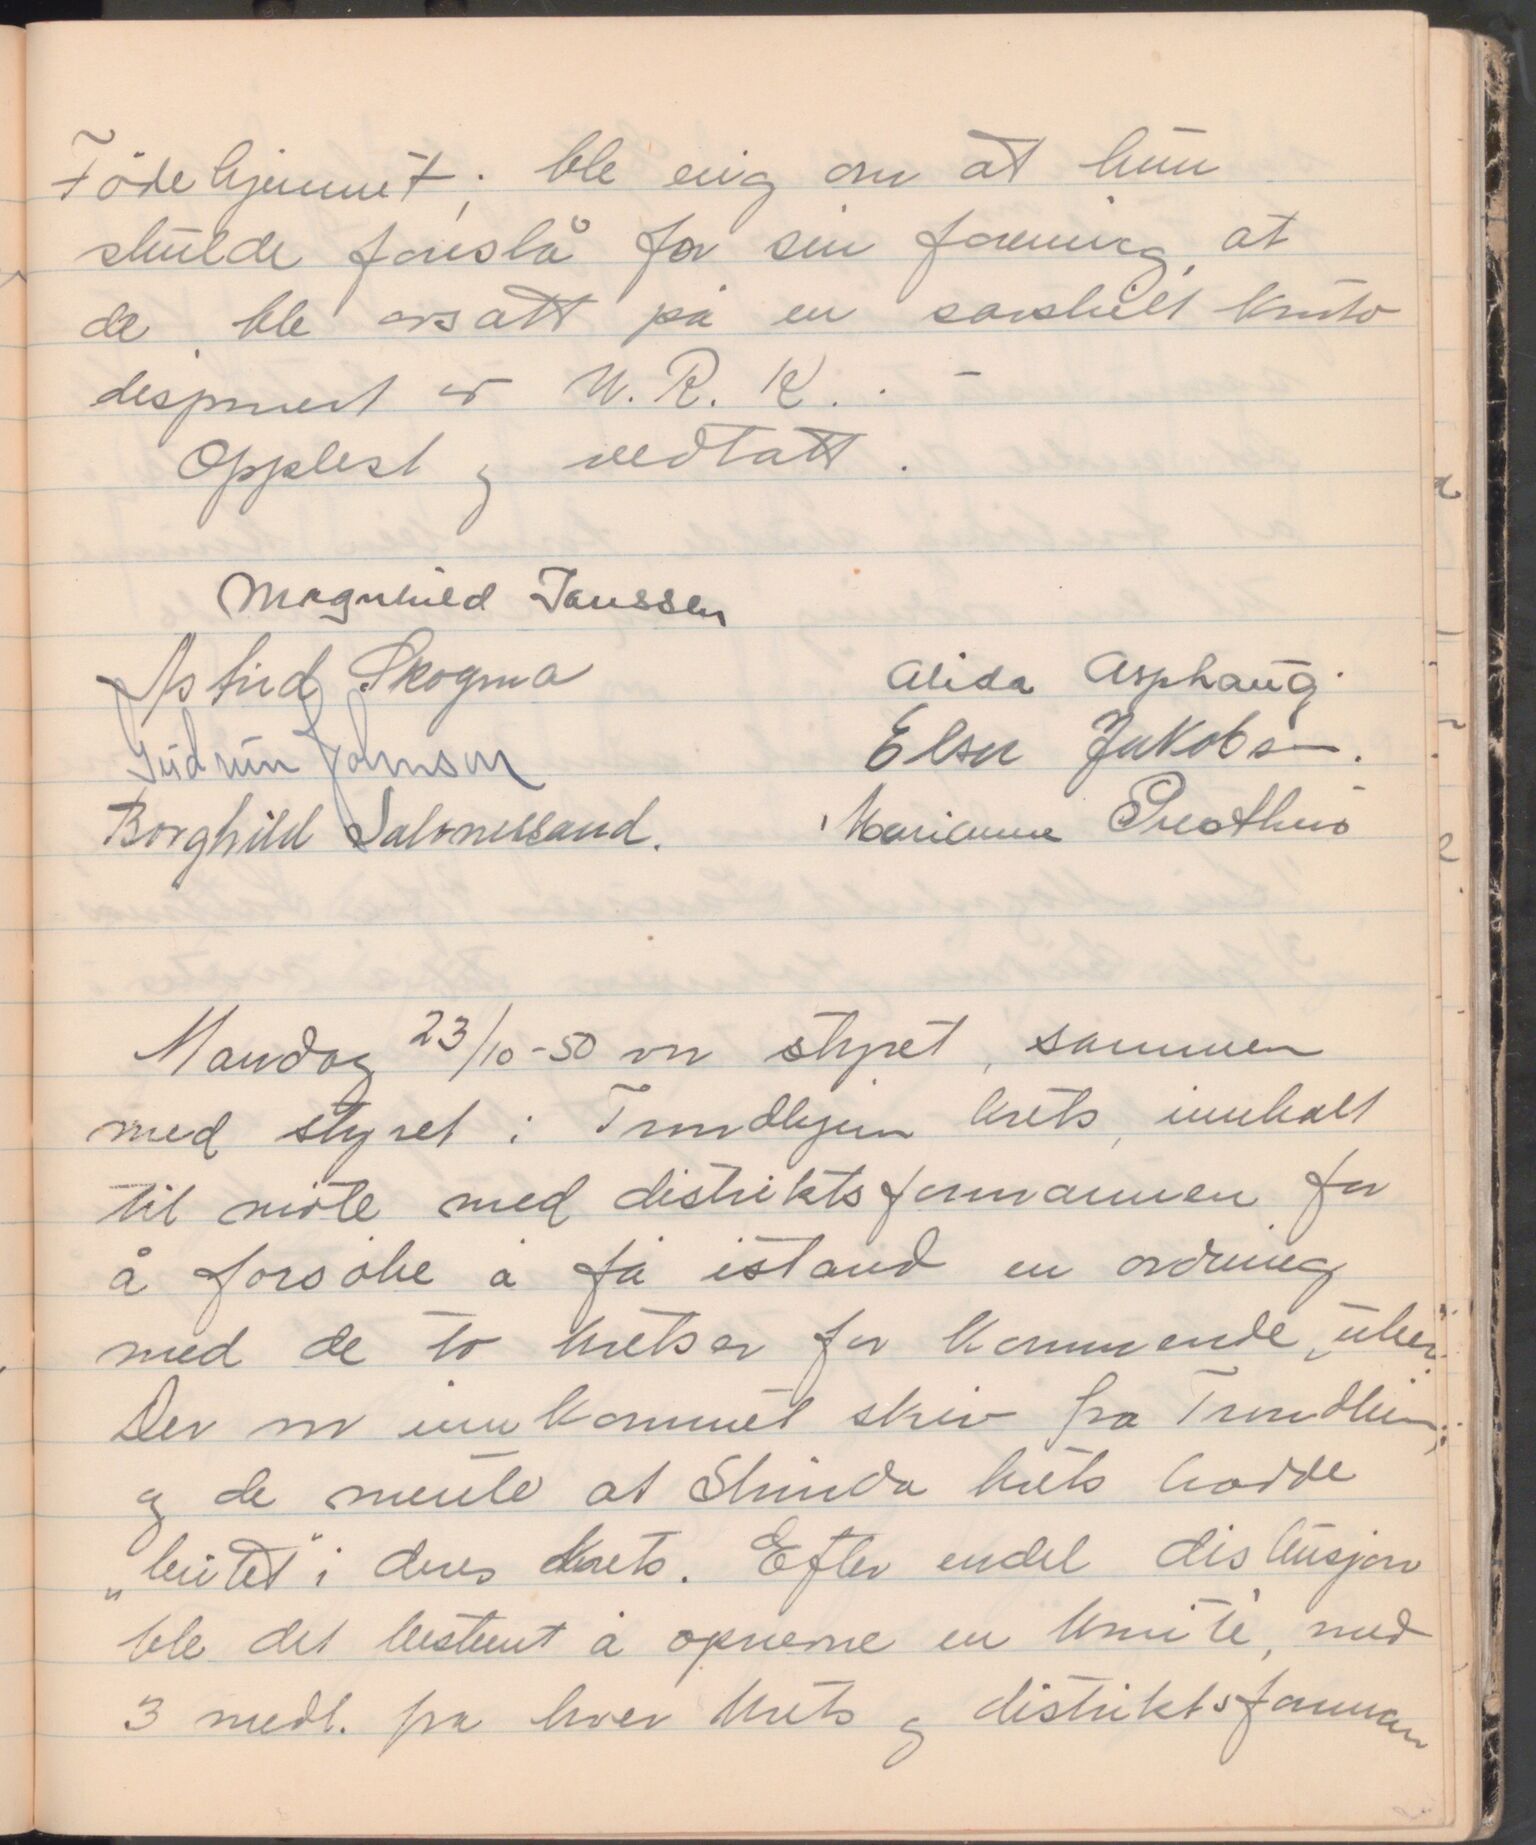 Födehjemmet; ble enig om at hun
skulde foreslå for sin forening, at
de ble avsatt på en særskilt konto
disponert av N.R.K. -
Opplest og vedtatt.
Magnhild Janssen
Astrid Skogmo
Alida Asphaug.
Gudrun Johnson
Elsa Jakobsen.
Borghild
Marianne
Mandag 23/10-50 var styret, sammen
med styret i Trondhjem krets, innkalt
til möte med distriktsformannen for
å forsöke å få istand en ordning
med de to kretser for kommende uker.
Der var innkommet skriv fra Trondheim,
og de mente at Strinda krets hadde
"beitet" i deres krets. Efter endel diskusjon
ble det bestemt å opnevne en komité, med
3 medl. fra hver krets og distriktsforman